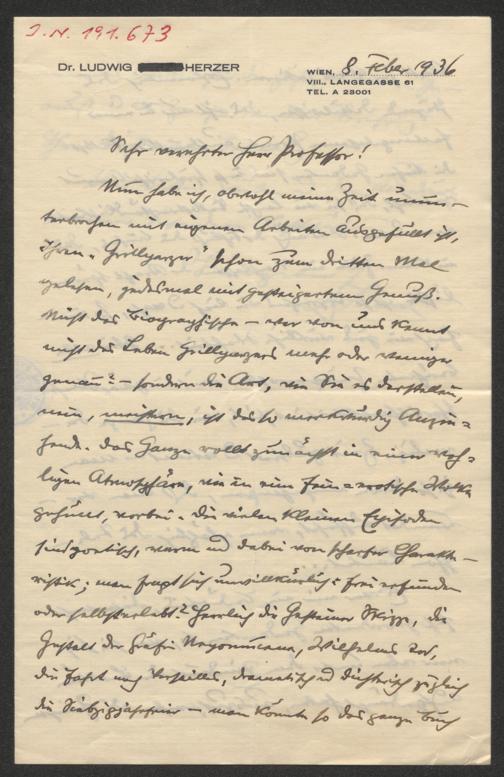 J.N. 191.673
Dr. LUDWIG HERZER
WIEN, 8. Feber 1936
VIII., LANGEGASSE 61
TEL. A 23001
Sehr verehrter Herr Professor!
Nun habe ich, obwohl meine Zeit unun-
terbrochen mit eigenen Arbeiten ausgefüllt ist,
Ihren „Grillparzer“ schon zum dritten Mal
gelesen, jedesmal mit gesteigertem Genuß.
Nicht das Biographische – wer von uns kennt
nicht das Leben Grillparzers mehr oder weniger
genau? – sondern die Art, wie Sie es darstellen,
nein, meistern, ist das so merkwürdig Anzie-
hende. Das Ganze rollt zunächst in einer woh-
ligen Atmosphäre, wie in eine fein-erotische Wolke
gehüllt, vorbei. Die vielen kleinen Episoden
sind poetisch, warm und dabei von scharfer Charakte-
ristik; man fragt sich unwillkürlich: frei erfunden
oder selbsterlebt? Herrlich die Gasteiner Skizze, die
Gestalt der Gräfin Wilhelms Tod,
die Fahrt nach Versailles, dramatisch und dichterisch zugleich
die Siebzigjahrfeier – man könnte so das ganze Buch